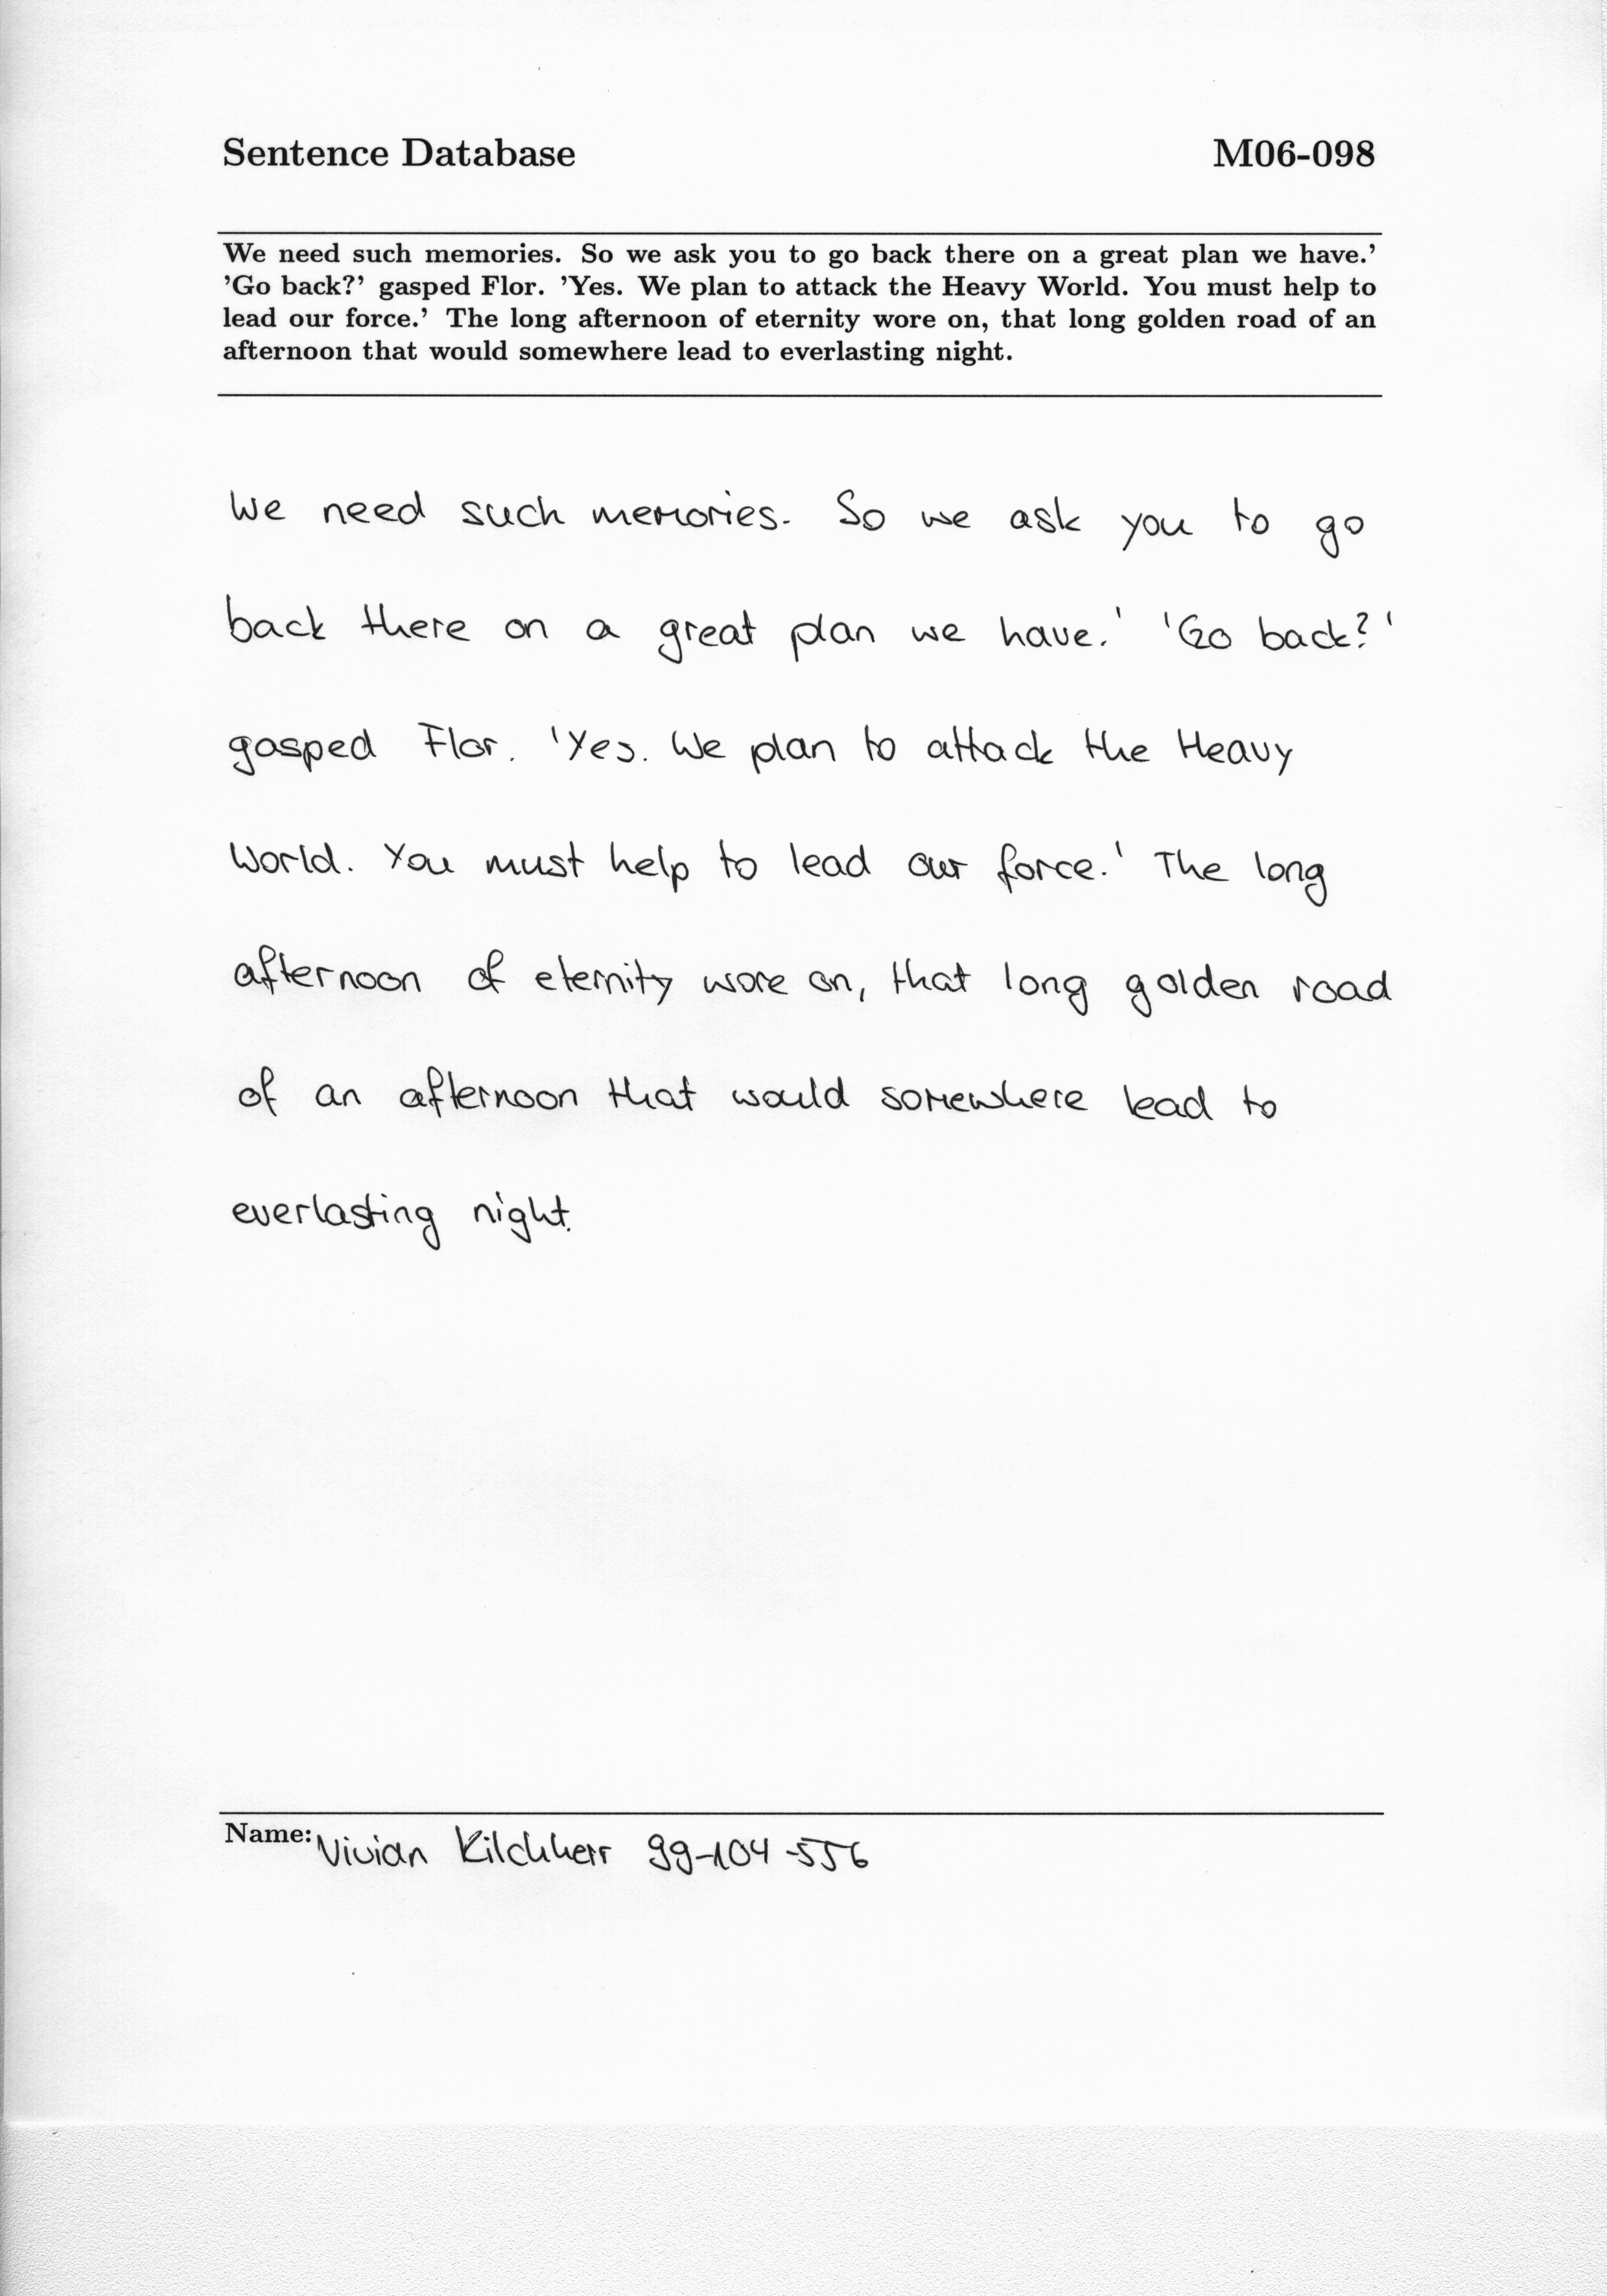 Sentence Database M06-098
We need such memories. So we ask you to go back there on a great plan we have.’
’Go back?’ gasped Flor. ’Yes. We plan to attack the Heavy World. You must help to
lead our force.’ The long afternoon of eternity wore on, that long golden road of an
afternoon that would somewhere lead to everlasting night.
We need such memories. So we ask you to go
back there on a great plan we have.' 'Go back?'
gasped Flor. 'Yes. We plan to attack the Heavy
World. You must help to lead our force.' The long
afternoon of eternity wore on, that long golden road
of an afternoon that would somewhere lead to
everlasting night.
Name: Vivian Kilchherr 99-104-556